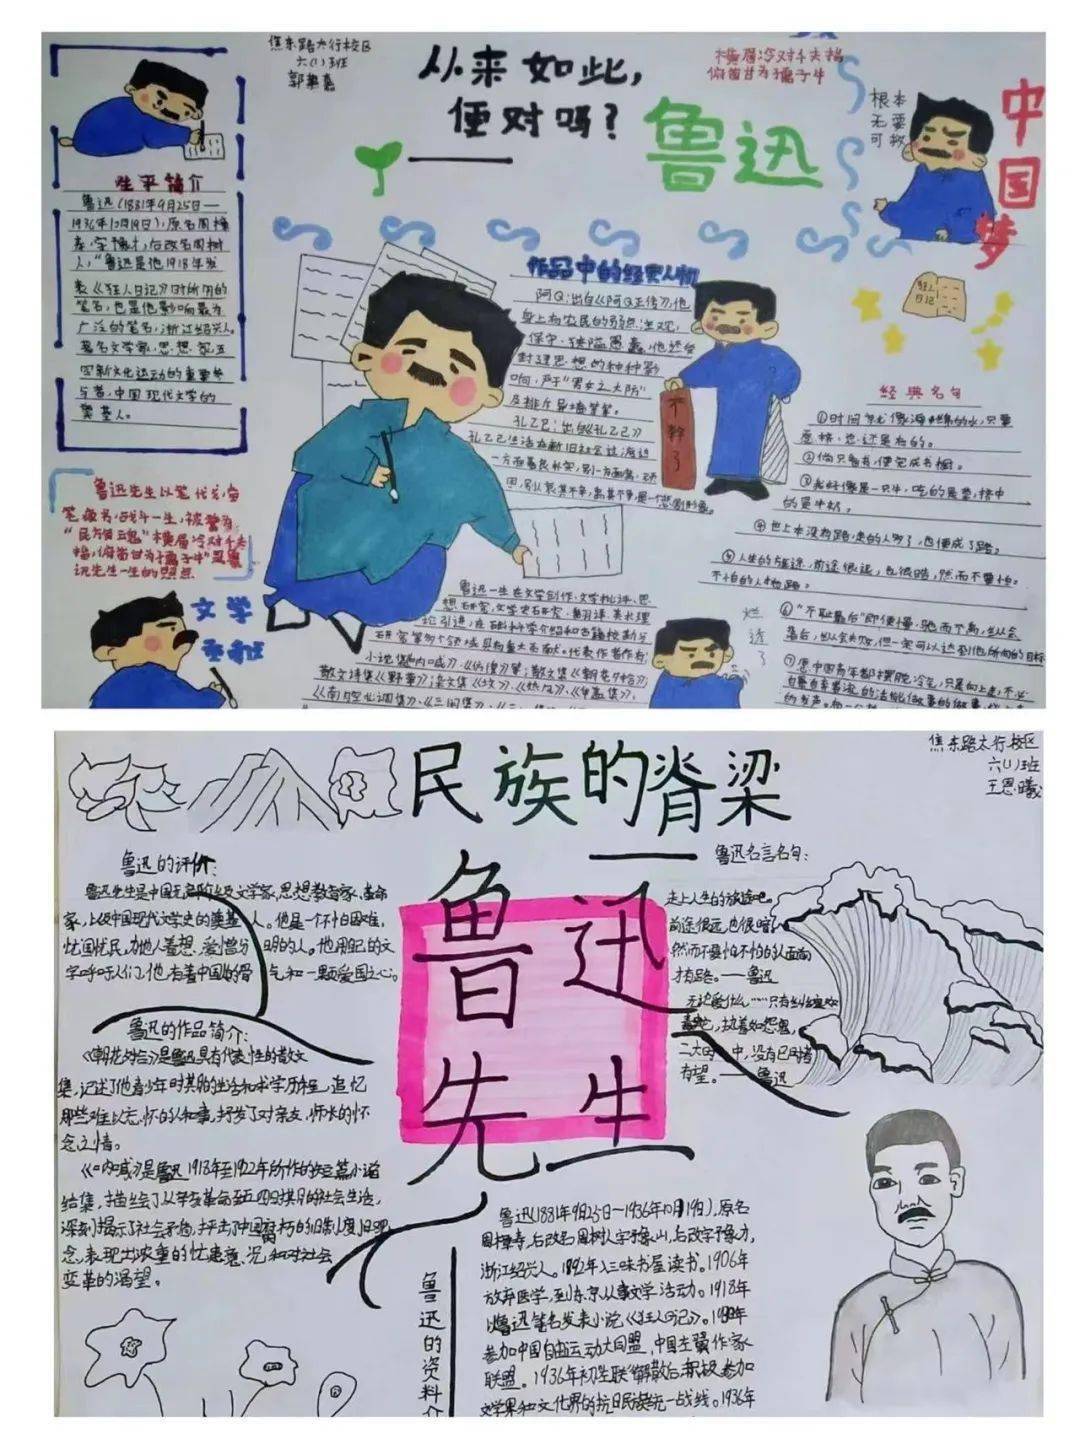 焦东路太行校区
六(1)班
从来如此，
便对吗？
鲁迅
横眉冷对千夫指
俯首甘为孺子牛
根本
无要
可救
中国梦
狂人
日记
生平简介
鲁迅(1881年9月25日—
1936年10月19日)，原名周樟
寿，字豫才，后改名周树
人，“鲁迅”是他1918年发
表《狂人日记》时所用的
笔名，也是他影响最为
广泛的笔名，浙江绍兴人。
著名文学家、思想家，五
四新文化运动的重要参
与者，中国现代文学的
奠基人。
鲁迅先生以笔代戈，奋
笔疾书，战斗一生，被誉为
“民族魂”横眉冷对千夫
指，俯首甘为孺子牛”是鲁
迅先生一生的照点
文学
作品中的经典人物
阿Q：出自《阿Q正传》，他
身上有农民的弱点：主观，
保守、狭隘愚蠢，他还受
封建思想的种种影
响，严于“男女之大防”
及排斥异端等等。
孔乙己：出自《孔乙己》
孔乙己生活在新旧社会过渡，
不幹了
经典名句
①时间就像海绵的水，只要
愿挤，总还是有的。
②倘只看书，便变成书橱。
③我好像是一只牛，吃的是草，挤中
的是牛奶。
④世上本没有路，走的人多了，也便成了路。
⑤人生的旅途，前途很远，也很暗，然而不要怕。
不怕的人才有路。
⑥“不耻最后”即使慢，驰而不离，纵会
落后，纵会失败，但一定可以达到他所向的目标
⑦愿中国青年都摆脱冷气，只是向上走，不必
烂透了
鲁迅一生在文学创作、文学批评、思
想研究、文学史研究、翻译、美术理
论引进、基础科学介绍和古籍校勘与
研究等多个领域具有重大贡献。代表作者作有：
小说集《呐喊》、《彷徨》等；散文集《朝花夕拾》；
散文诗集《野草》；杂文集《坟》、《热风》、《华盖集》、
《南腔北调集》、《三闲集》、《二
焦东路太行校区
六(1)班
王恩曦
民族的脊梁
鲁迅先生
鲁迅的评价：
鲁迅先生是中国无产阶级文学家，思想教育家、革命
家，上级中国现代文学史的奠基人。他是一个不怕困难，
忧国忧民，为他人着想，爱憎分明的人。他用自己的文
字呼吁人们，他有着中国的骨气和一颗爱国之心。
鲁迅的作品简介：
《朝花夕拾》是鲁迅具有代表性的散文
集，记述了他青少年时其的生活和求学历程，追忆
那些难以忘怀的人和事，抒发了对亲友、师长的怀
念之情。
《呐喊》是鲁迅1918年至1922年所作的短篇小说
结集，描绘了从辛亥革命至五四时其的社会生活，
深刻揭示了社会矛盾，抨击了中国腐朽的旧制度旧观
念，表现出浓重的忧患意识和对社会
变革的渴望。
鲁迅名言名句：
走上人生的旅途吧。
前途很远，也很暗，
然而不要怕，不怕的人面前
才有路。——鲁迅
无论爱什么……只有纠缠如
毒蛇，执着如怨鬼，
二六时中，没有已时者
有望。——鲁迅
鲁迅的资料介
鲁迅(1881年9月25日~1936年10月19日)，原名
周樟寿，后改名周树人，字豫山，后改字豫才，
浙江绍兴人。1892年入三味书屋读书。1906年
放弃医学，到东京从事文学活动。1918年
以鲁迅笔名发表小说《狂人日记》。1930年
参加中国自由运动大同盟，中国左翼作家
联盟。1936年初“左联”解散后积极参加
文学界和文化界的抗日民族统一战线。1936年